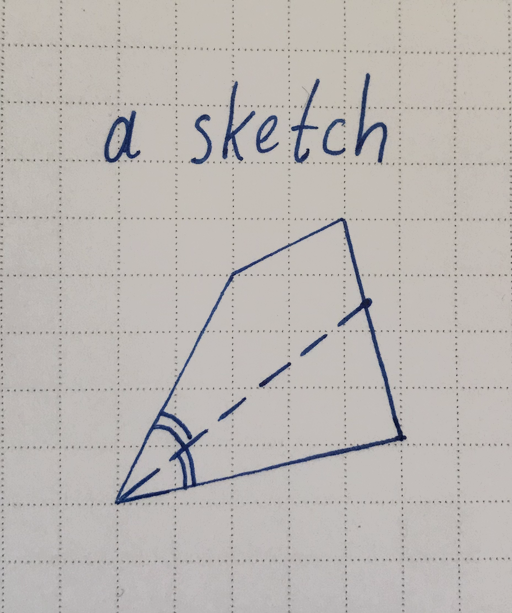 a sketch